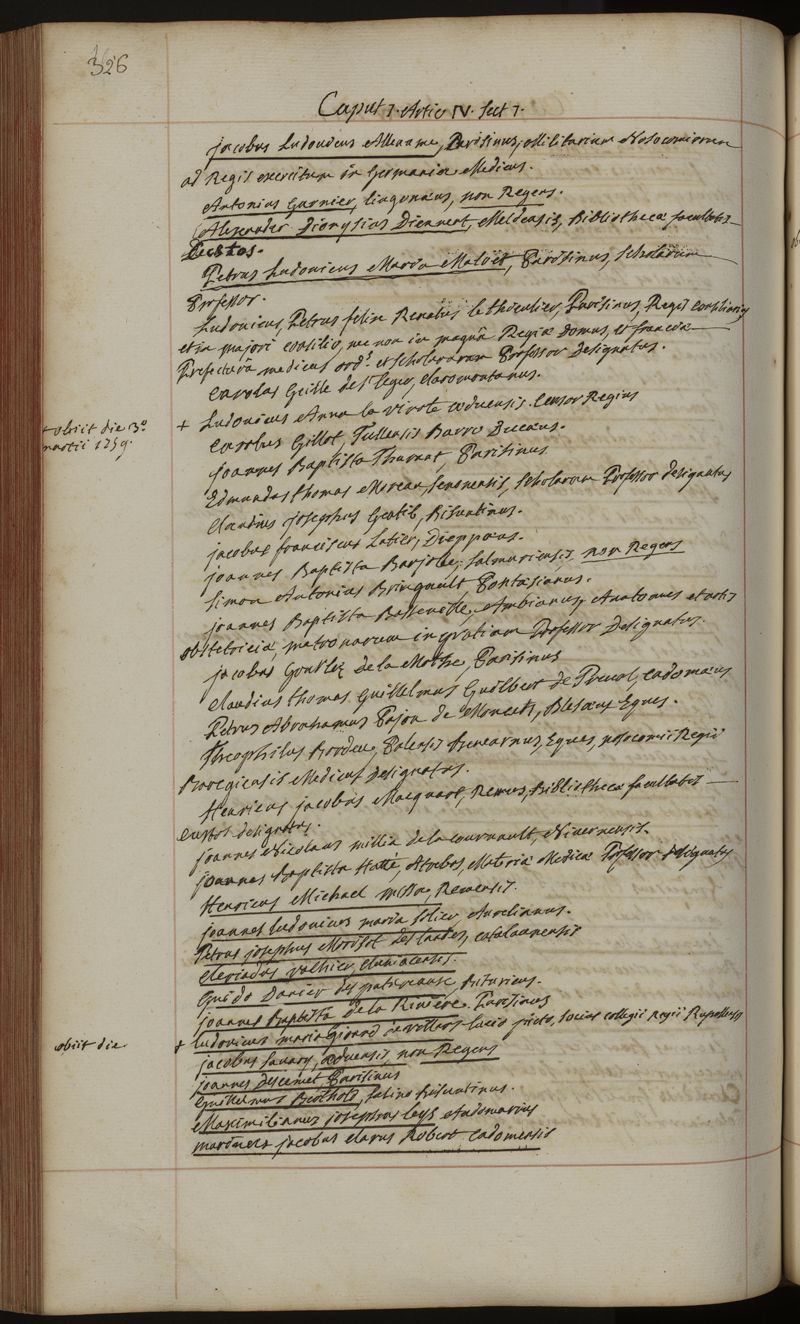 326
Caput 7. Artic IV. Sect 7.
Jacobus Ludovicus Alleaume, Parisinus, Militarium Nosocomiorum
ad Regis exercitum in Germania Medicus.
Antonius Garnier, Lingonaus, non Regens.
Alexander Dionysius Dienert, Meldensis, Bibliothecæ facultatis
Custos.
Petrus Ludovicus Maria Maloët, Parisinus, Scholarum
Professor.
Ludovicus, Petrus felix Renatus le thieulier, Parisinus, Regis Consiliarius
et in majori consilio, nec non in magnâ Regiæ Domus, et franciæ
Præfecturâ medicus ord.s et scholarum Professor Designatus.
Carolus Geille de St leger, Claromontanus.
+ Ludovicus Anna la virote æduensis. Censor Regius
+ obiit die 3a
martii 1759.
Carolus Gillot, Tullensis Barro Ducæus.
Joannes Baptista Thurant, Parisinus
Edmundus thomas Moreau, Senonensis, Scholarum Professor designatus
Claudius Josephus Gentil, Bisuntinus.
Jacobus franciscus Latier, Dieppæus.
Joannes Baptista Barjolle, Salmuriensis non Regens
Simon Antonius Bringault Pontasianus.
Joannes Baptista Basseville, Ambianus, Anatomes et artis
obstetriciæ, matronarum in gratiam Professor Designatus.
Jacobus de la Mothe, Parisinus
Claudius thomas Guillelmus Guilbert de Preval, Cadomæus
Petrus Abrahamus Pajon de Moncets, Blesæus Eques.
Theophilus Bordeu, Palensis Benearnus, Eques, nosocomii Regii
Baregiensis Medicus Designatus.
Henricus Jacobus Macquart, Remus, Bibliothecæ facultatis
Custos designatus.
Joannes Nicolaus millin de la courvault, Nivernensis.
Joannes Baptista Hatté, Atrebas, Materiæ Medicæ Professor designatus
Henricus Michael Missa, Remensis.
Joannes Ludovicus maria Solier, Aurelianus.
Petrus Josephus Morisot des landes, Catalaunensis
Cleriadus vachier,
Guido Danier des patureaux, Bituricus.
Joannes Baptista de la Riviere. Parisinus
+ Ludovicus maria girard de villars Lucio picto, Socius collegii Regii Rupellensis
obiit die
Jacobus Savary, æduensis, non Regens
Joannes Descemet Parisinus
Guillelmus Berthold, Bisuntinus.
Maximilianus Josephus leys Audomarius
Jacobus clarus Robert Cadomensis